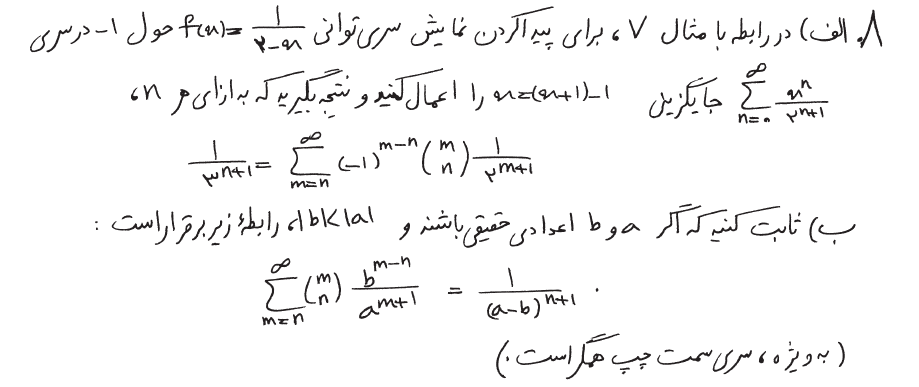 ۸. الف) در رابطه با مثال ۷، برای پیدا کردن نمایش سری توانی f(x)=1/(۲-x) حول ۱- در سری
∑_{n=۰}^{∞} x^n/۲^{n+1} جایگزینی x=(x+1)-1 را اعمال کنید و نتیجه بگیرید که به ازای هر n،
1/۳^{n+1} = ∑_{m=n}^{∞} (-1)^{m-n} (m n) 1/۲^{m+1}
ب) ثابت کنید که اگر a و b اعدادی حقیقی باشند و |b|<|a|، رابطهٔ زیر برقرار است :
∑_{m=n}^{∞} (m n) b^{m-n}/a^{m+1} = 1/(a-b)^{n+1} .
(به ویژه، سری سمت چپ همگراست.)